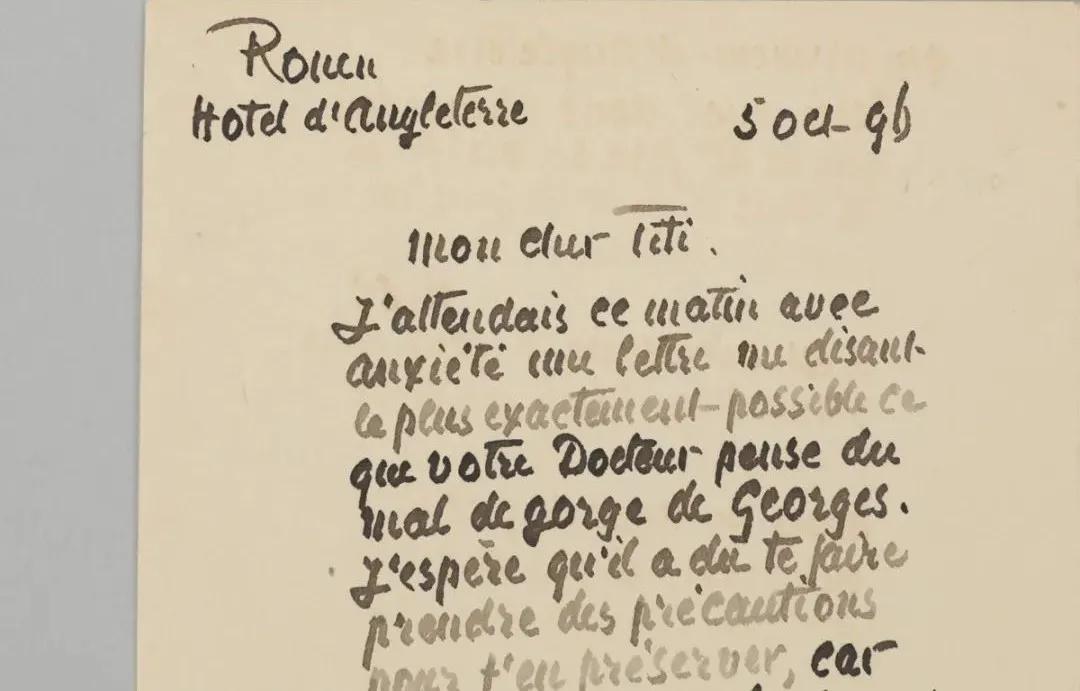 Rouen
Hotel d'Angleterre
5 oct - 96
mon cher Titi.
J'attendais ce matin avec
anxiété une lettre me disant
le plus exactement possible ce
que votre Docteur pense du
mal de gorge de Georges.
J'espère qu'il a du te faire
prendre des précautions
pour t'en préserver, car